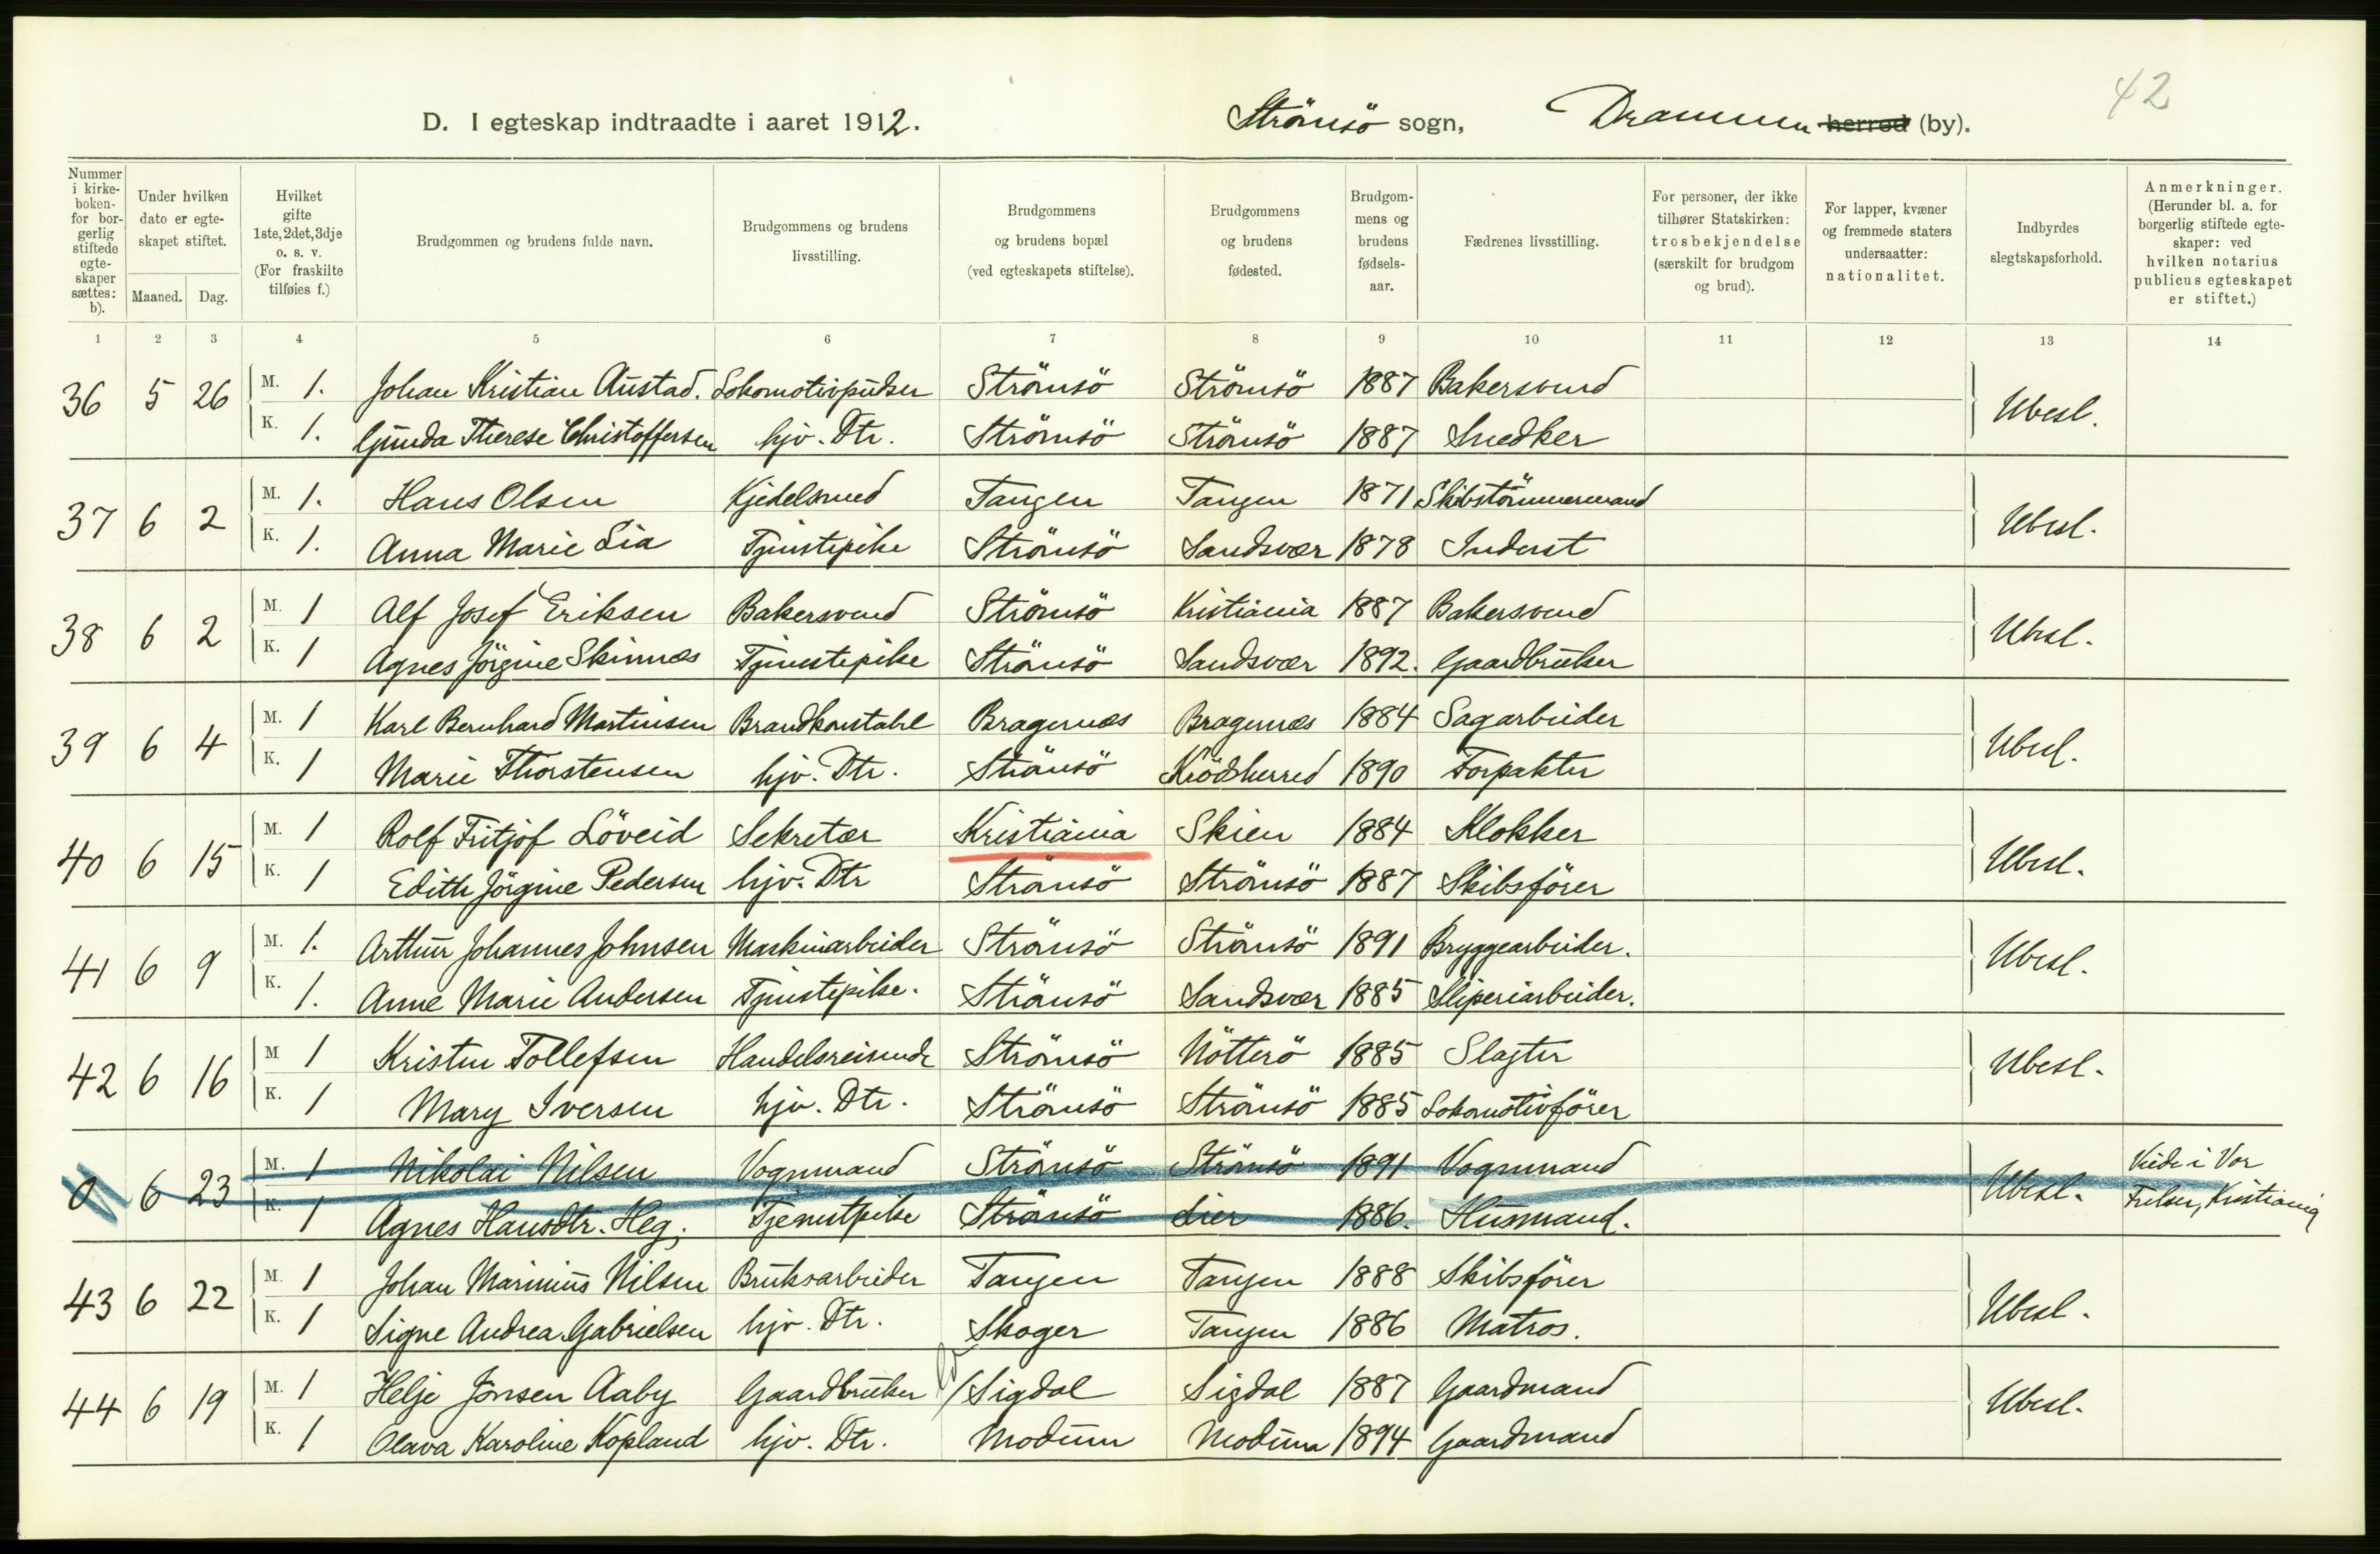 42
D. I egteskap indtraadte i aaret 1912. Strömsö sogn, Drammen herred (by).
Nummer i kirkeboken- for borgerlig stiftede egteskaper sættes: b). Under hvilken dato er egteskapet stiftet. Maaned. Dag. Hvilket gifte 1ste, 2det, 3dje o. s. v. (For fraskilte tilføies f.) Brudgommen og brudens fulde navn. Brudgommens og brudens livsstilling. Brudgommens og brudens bopæl (ved egteskapets stiftelse). Brudgommens og brudens fødested. Brudgommens og brudens fødselsaar. Fædrenes livsstilling. For personer, der ikke tilhører Statskirken: trosbekjendelse (særskilt for brudgom og brud). For lapper, kvæner og fremmede staters undersaatter: nationalitet. Indbyrdes slegtskapsforhold. Anmerkninger. (Herunder bl. a. for borgerlig stiftede egteskaper: ved hvilken notarius publicus egteskapet er stiftet.)
1 2 3 4 5 6 7 8 9 10 11 12 13 14
36 5 26 M. 1. Johan Kristian Austad. Lokomotivpudser Strömsö Strömsö 1887 Bakersvend Ubesl.
K. 1. Gunda Therese Christoffersen hjv. Dtr. Strömsö Strömsö 1887 Snedker
37 6 2 M. 1. Hans Olsen Kjedelsmed Tangen Tangen 1871 Skibstömmermand Ubesl.
K. 1. Anna Marie Lia Tjenstepike Strömsö Sandsvær 1878 Inderst
38 6 2 M. 1 Alf Josef Eriksen Bakersvend Strömsö Kristiania 1887 Bakersvend Ubesl.
K. 1 Agnes Jörgine Skinnes Tjenestepike Strömsö Sandsvær 1892. Gaardbruker
39 6 4 M. 1 Karl Bernhard Martinsen Brandkonstabel Bragernæs Bragernæs 1884 Sagarbeider Ubesl.
K. 1 Marie Thorstensen hjv. Dtr. Strömsö Krödsherred 1890 Forpakter
40 6 15 M. 1 Rolf Fritjof Löveid Sekretær Kristiania Skien 1884 Klokker Ubesl.
K. 1 Edith Jörgine Pedersen hjv. Dtr Strömsö Strömsö 1887 Skibsförer
41 6 9 M. 1. Arthur Johannes Johnsen Maskinarbeider Strömsö Strömsö 1891 Bryggearbeider. Ubesl.
K. 1. Anne Marie Andersen Tjenstepike. Strömsö Sandsvær 1885 Sliperiarbeider.
42 6 16 M 1 Kristen Tollefsen Handelsreisende Strömsö Nötterö 1885 Slagter Ubesl.
K. 1 Mary Iversen hjv. Dtr. Strömsö Strömsö 1885 Lokomotivförer
0 6 23 M. 1 Nikolai Nilsen Vognmand Strömsö Strömsö 1891 Vognmand Ubesl. Viede i Vor
K. 1 Agnes Hansdtr. Heg. Tjenestpike Strömsö Lier 1886. Husmand. Frelser, Kristiania
43 6 22 M. 1 Johan Marinius Nilsen Bruksarbeider Tangen Tangen 1888 Skibsförer Ubesl.
K. 1 Signe Andrea Gabrielsen hjv. Dtr. Skoger Tangen 1886 Matros.
44 6 19 M. 1 Helje Jonsen Aaby Gaardbruker Sigdal Sigdal 1887 Gaardmand Ubesl.
K. 1 Olava Karoline Kopland hjv. Dtr. Modum Modum 1894 Gaardmand